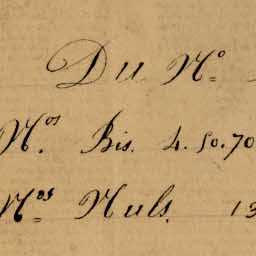 Du Nº
Nos. Bis. 4. 50. 70
Nos Nuls. 13